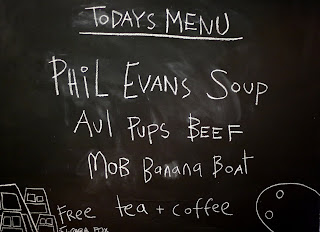 TODAYS MENU
PHIL EVANS SOUP
AUL PUPS BEEF
MOB Banana BOAT
FREE tea + coffee